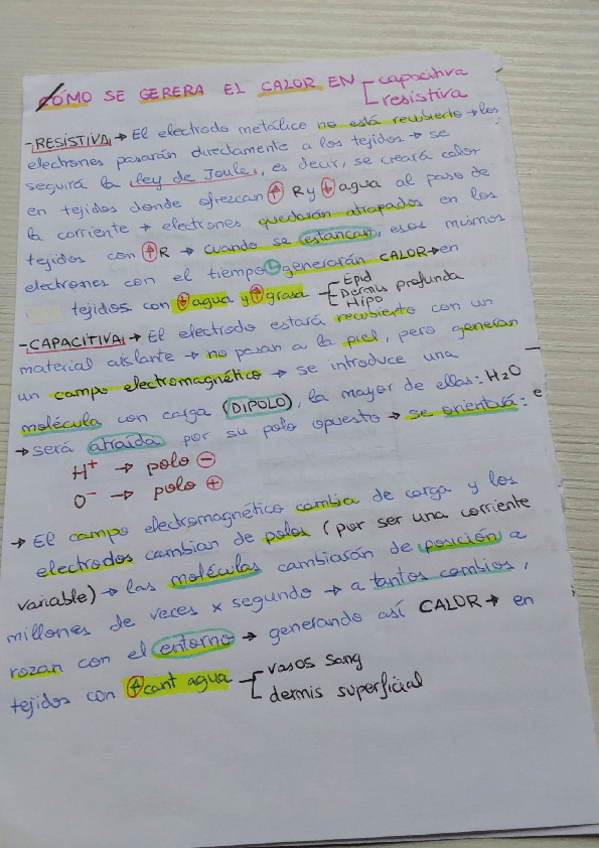 CÓMO SE GERERA EL CALOR EN [capacitiva
resistiva
- RESISTIVA → El electrodo metálico no está recubierto → los
electrones pasarán directamente a los tejidos → se
seguirá la ley de Joule, es decir, se creará calor
en tejidos donde ofrezcan ↑ R y ↓ agua al paso de
la corriente → electrones quedarán atrapados en los
tejidos con ↑ R → cuando se estancan, esos mismos
electrones con el tiempo generarán CALOR → en
tejidos con ↓ agua y ↑ grasa [Epid
Dermis profunda
Hipo
- CAPACITIVA → El electrodo estará recubierto con un
material aislante → no pasan a la piel, pero generan
un campo electromagnético → se introduce una
molécula con carga (DIPOLO), la mayor de ellas: H₂O
→ será atraída por su polo opuesto → se orientará: e
H⁺ → polo ⊖
O⁻ → polo ⊕
→ El campo electromagnético cambia de carga y los
electrodos cambian de polos (por ser una corriente
variable) → las moléculas cambiarán de posición a
millones de veces x segundo → a tantos cambios,
rozan con el entorno → generando así CALOR → en
tejidos con ↑ cant agua [vasos sang
dermis superficial